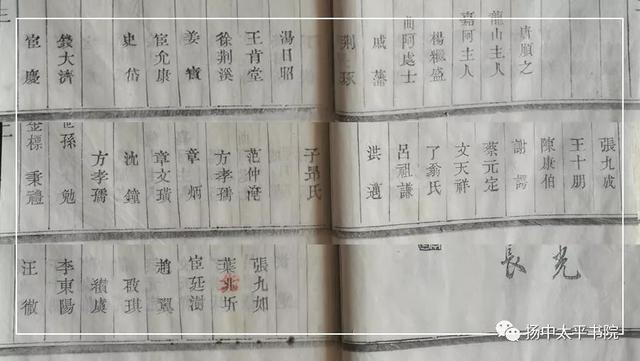 唐順之
龍山主人
嘉阿主人
楊繼盛
曲阿處士
戚藩
荆琢
湯日昭
王肯堂
徐荆溪
姜寶
宦允康
史岱
錢大濟
宦慶
張九成
王十朋
陳康伯
謝諤
蔡元定
文天祥
了翁氏
呂祖謙
洪邁
子昂氏
范仲淹
方孝孺
章炳
章文璜
沈鐘
方孝孺
孫勉
金標 秉禮
光長
張九如
葉兆圻
宦延澍
趙翼
琪
積慶
李東陽
汪徹
扬中太平书院